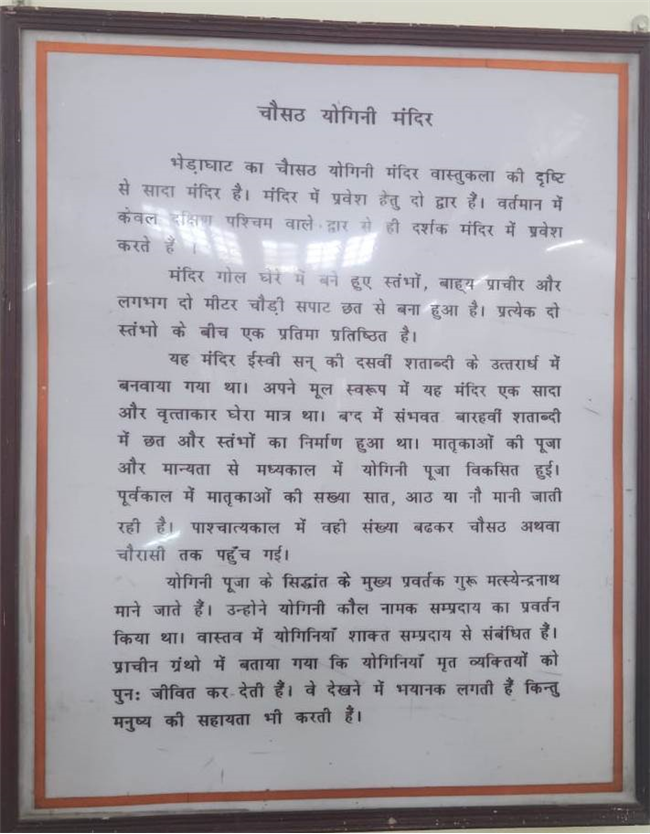 चौसठ योगिनी मंदिर
भेड़ाघाट का चौसठ योगिनी मंदिर वास्तुकला की दृष्टि
से सादा मंदिर है। मंदिर में प्रवेश हेतु दो द्वार हैं। वर्तमान में
केवल दक्षिण पश्चिम वाले द्वार से ही दर्शक मंदिर में प्रवेश
करते हैं ।
मंदिर गोल घेरे में बने हुए स्तंभों, बाह्य प्राचीर और
लगभग दो मीटर चौड़ी सपाट छत से बना हुआ है। प्रत्येक दो
स्तंभो के बीच एक प्रतिमा प्रतिष्ठित है।
यह मंदिर ईस्वी सन् की दसवीं शताब्दी के उत्तरार्ध में
बनवाया गया था। अपने मूल स्वरूप में यह मंदिर एक सादा
और वृत्ताकार घेरा मात्र था। बाद में संभवत बारहवीं शताब्दी
में छत और स्तंभों का निर्माण हुआ था। मातृकाओं की पूजा
और मान्यता से मध्यकाल में योगिनी पूजा विकसित हुई।
पूर्वकाल में मातृकाओं की सख्या सात, आठ या नौ मानी जाती
रही है। पाश्चात्यकाल में वही संख्या बढकर चौसठ अथवा
चौरासी तक पहुँच गई।
योगिनी पूजा के सिद्धांत के मुख्य प्रवर्तक गुरू मत्स्येन्द्रनाथ
माने जाते हैं। उन्होने योगिनी कौल नामक सम्प्रदाय का प्रवर्तन
किया था। वास्तव में योगिनियाँ शाक्त सम्प्रदाय से संबंधित हैं।
प्राचीन ग्रंथो में बताया गया कि योगिनियाँ मृत व्यक्तियों को
पुनः जीवित कर देती हैं। वे देखने में भयानक लगती हैं किन्तु
मनुष्य की सहायता भी करती हैं।